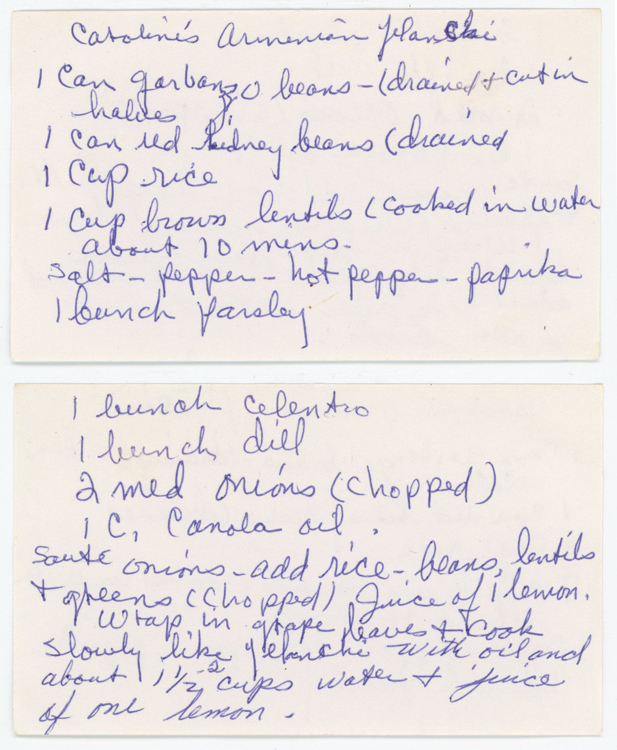 Caroline's Armenian Ylanchi
1 Can garbanzo beans - (drained + cut in
halves
1 can red kidney beans (drained
1 Cup rice
1 Cup brown lentils (cooked in water
about 10 mins.
Salt - pepper - hot pepper - paprika
1 bunch Parsley
1 bunch celentro
1 bunch dill
2 med onions (chopped)
1 C. Canola oil.
Sauté onions - add rice - beans, lentils
+ greens (chopped) Juice of 1 lemon.
Wrap in grape leaves + Cook
slowly like yelanchi with oil and
about 1 1/2-2 cups water + juice
of one lemon.